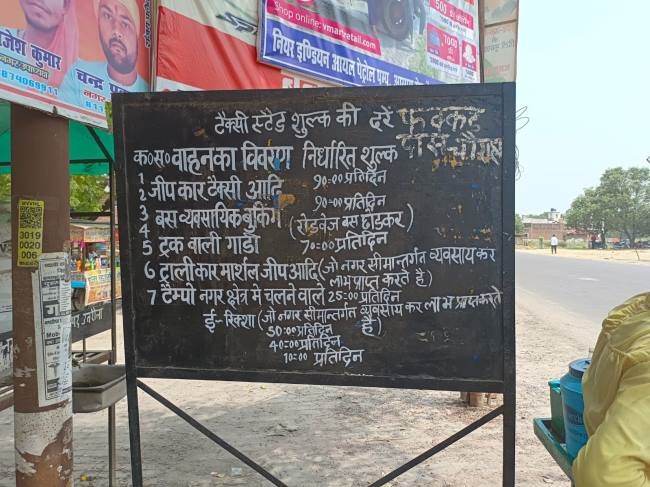 Shop online: vmartretail.com
500
नियर इण्डियन आयल पेट्रोल पम्प,
जेश कुमार
8674069911
3019
0020
006
टैक्सी स्टैंड शुल्क की दरें
क०स० वाहन का विवरण निर्धारित शुल्क
1
2 जीप कार टैक्सी आदि १०=०० प्रतिदिन
3 बस व्यवसायिक बुकिंग (रोडवेज बस छोडकर) १०=०० प्रतिदिन
4
5 ट्रक वाली गाडी 70=00 प्रतिदिन
6 ट्राली कार मार्शल जीप आदि (जो नगर सीमान्तर्गत व्यवसाय कर लाभ प्राप्त करते है)
7 टैम्पो नगर क्षेत्र मे चलने वाले 25=00 प्रतिदिन
ई-रिक्शा (जो नगर सीमान्तर्गत व्यवसाय कर लाभ प्राप्त करते है)
50=00 प्रतिदिन
40=00 प्रतिदिन
10=00 प्रतिदिन